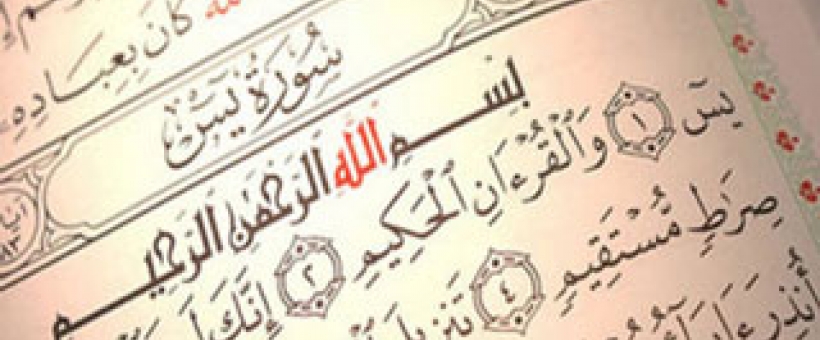 كَانَ بِعِبَادِهِۦ
سُورَةُ يسٓ
٨٣
بِسْمِ اللَّهِ الرَّحْمَٰنِ الرَّحِيمِ
يسٓ ١ وَٱلْقُرْءَانِ ٱلْحَكِيمِ ٢ إِنَّكَ
صِرَٰطٍ مُّسْتَقِيمٍ ٤ تَنزِيلَ
أُنذِرَ